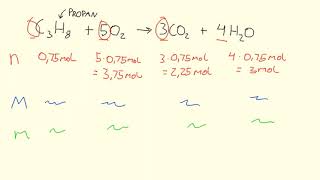 PROPAN
C₃H₈ + 5O₂ → 3CO₂ + 4H₂O
n 0,75mol 5·0,75mol 3·0,75mol 4·0,75mol
= 3,75mol = 2,25mol = 3mol
M
m